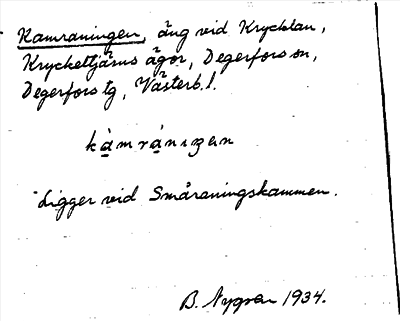 Kamraningen, äng vid Krycklan,
Kryckeltjärns ägor, Degerfors sn,
Degerfors tg, Västerb.l.
kàmránıŋen
Ligger vid Småraningskammen.
B. Nygren 1934.